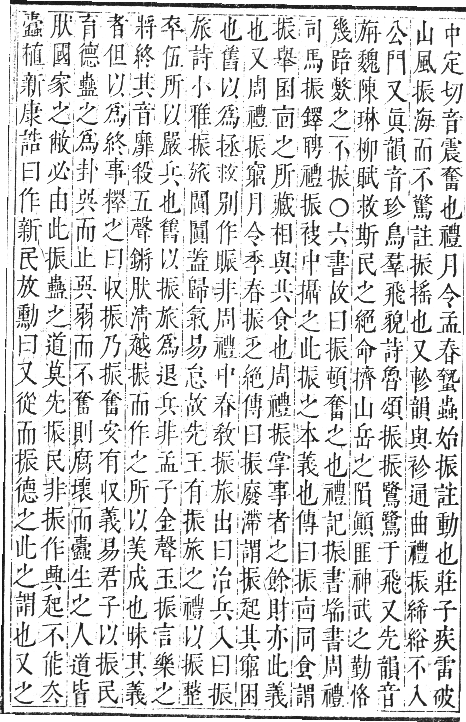 中定切音震奮也禮月令孟春蟄蟲始振註動也莊子疾雷破
山風振海而不驚註振搖也又軫韻與袗通曲禮振絺綌不入
公門又眞韻音珍鳥羣飛貌詩魯頌振振鷺鷺于飛又先韻音
旃魏陳琳柳賦救斯民之絕命擠山岳之隕顚匪神武之勤恪
幾踣斃之不振○六書故曰振頓奮之也禮記振書端書周禮
司馬振鐸聘禮振袂中攝之此振之本義也傳曰振卣同食謂
振舉困卣之所藏相與共食也周禮振掌事者之餘財亦此義
也又周禮振窮月令季春振乏絕傳曰振廢滯謂振起其窮困
也舊以爲拯救別作賑非周禮中春敎振旅出曰治兵入曰振
旅詩小雅振旅闐闐蓋歸氣易怠故先王有振旅之禮以振整
卒伍所以嚴兵也舊以振旅爲退兵非孟子金聲玉振言樂之
將終其音靡殺五聲鏘肰淸越振而作之所以美成也昧其義
者但以爲終事釋之曰收振乃振奮安有収義易君子以振民
育德蠱之爲卦巽而止巽弱而不奮則腐壞而蠹生之人道皆
肰國家之敝必由此振蠱之道莫先振民非振作興起不能厺
蠹植新康誥曰作新民放勳曰又從而振德之此之謂也又之